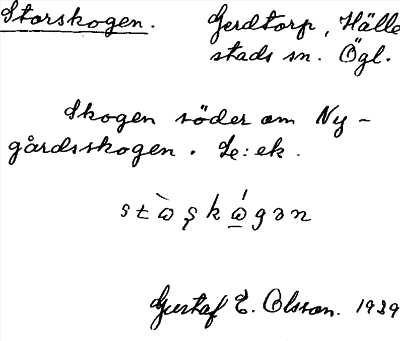 Storskogen. Gerdtorp, Hälle
stads sn. Ögl.
Skogen söder om Ny-
gårdsskogen. Se: ek.
Gustaf E. Olsson. 1939